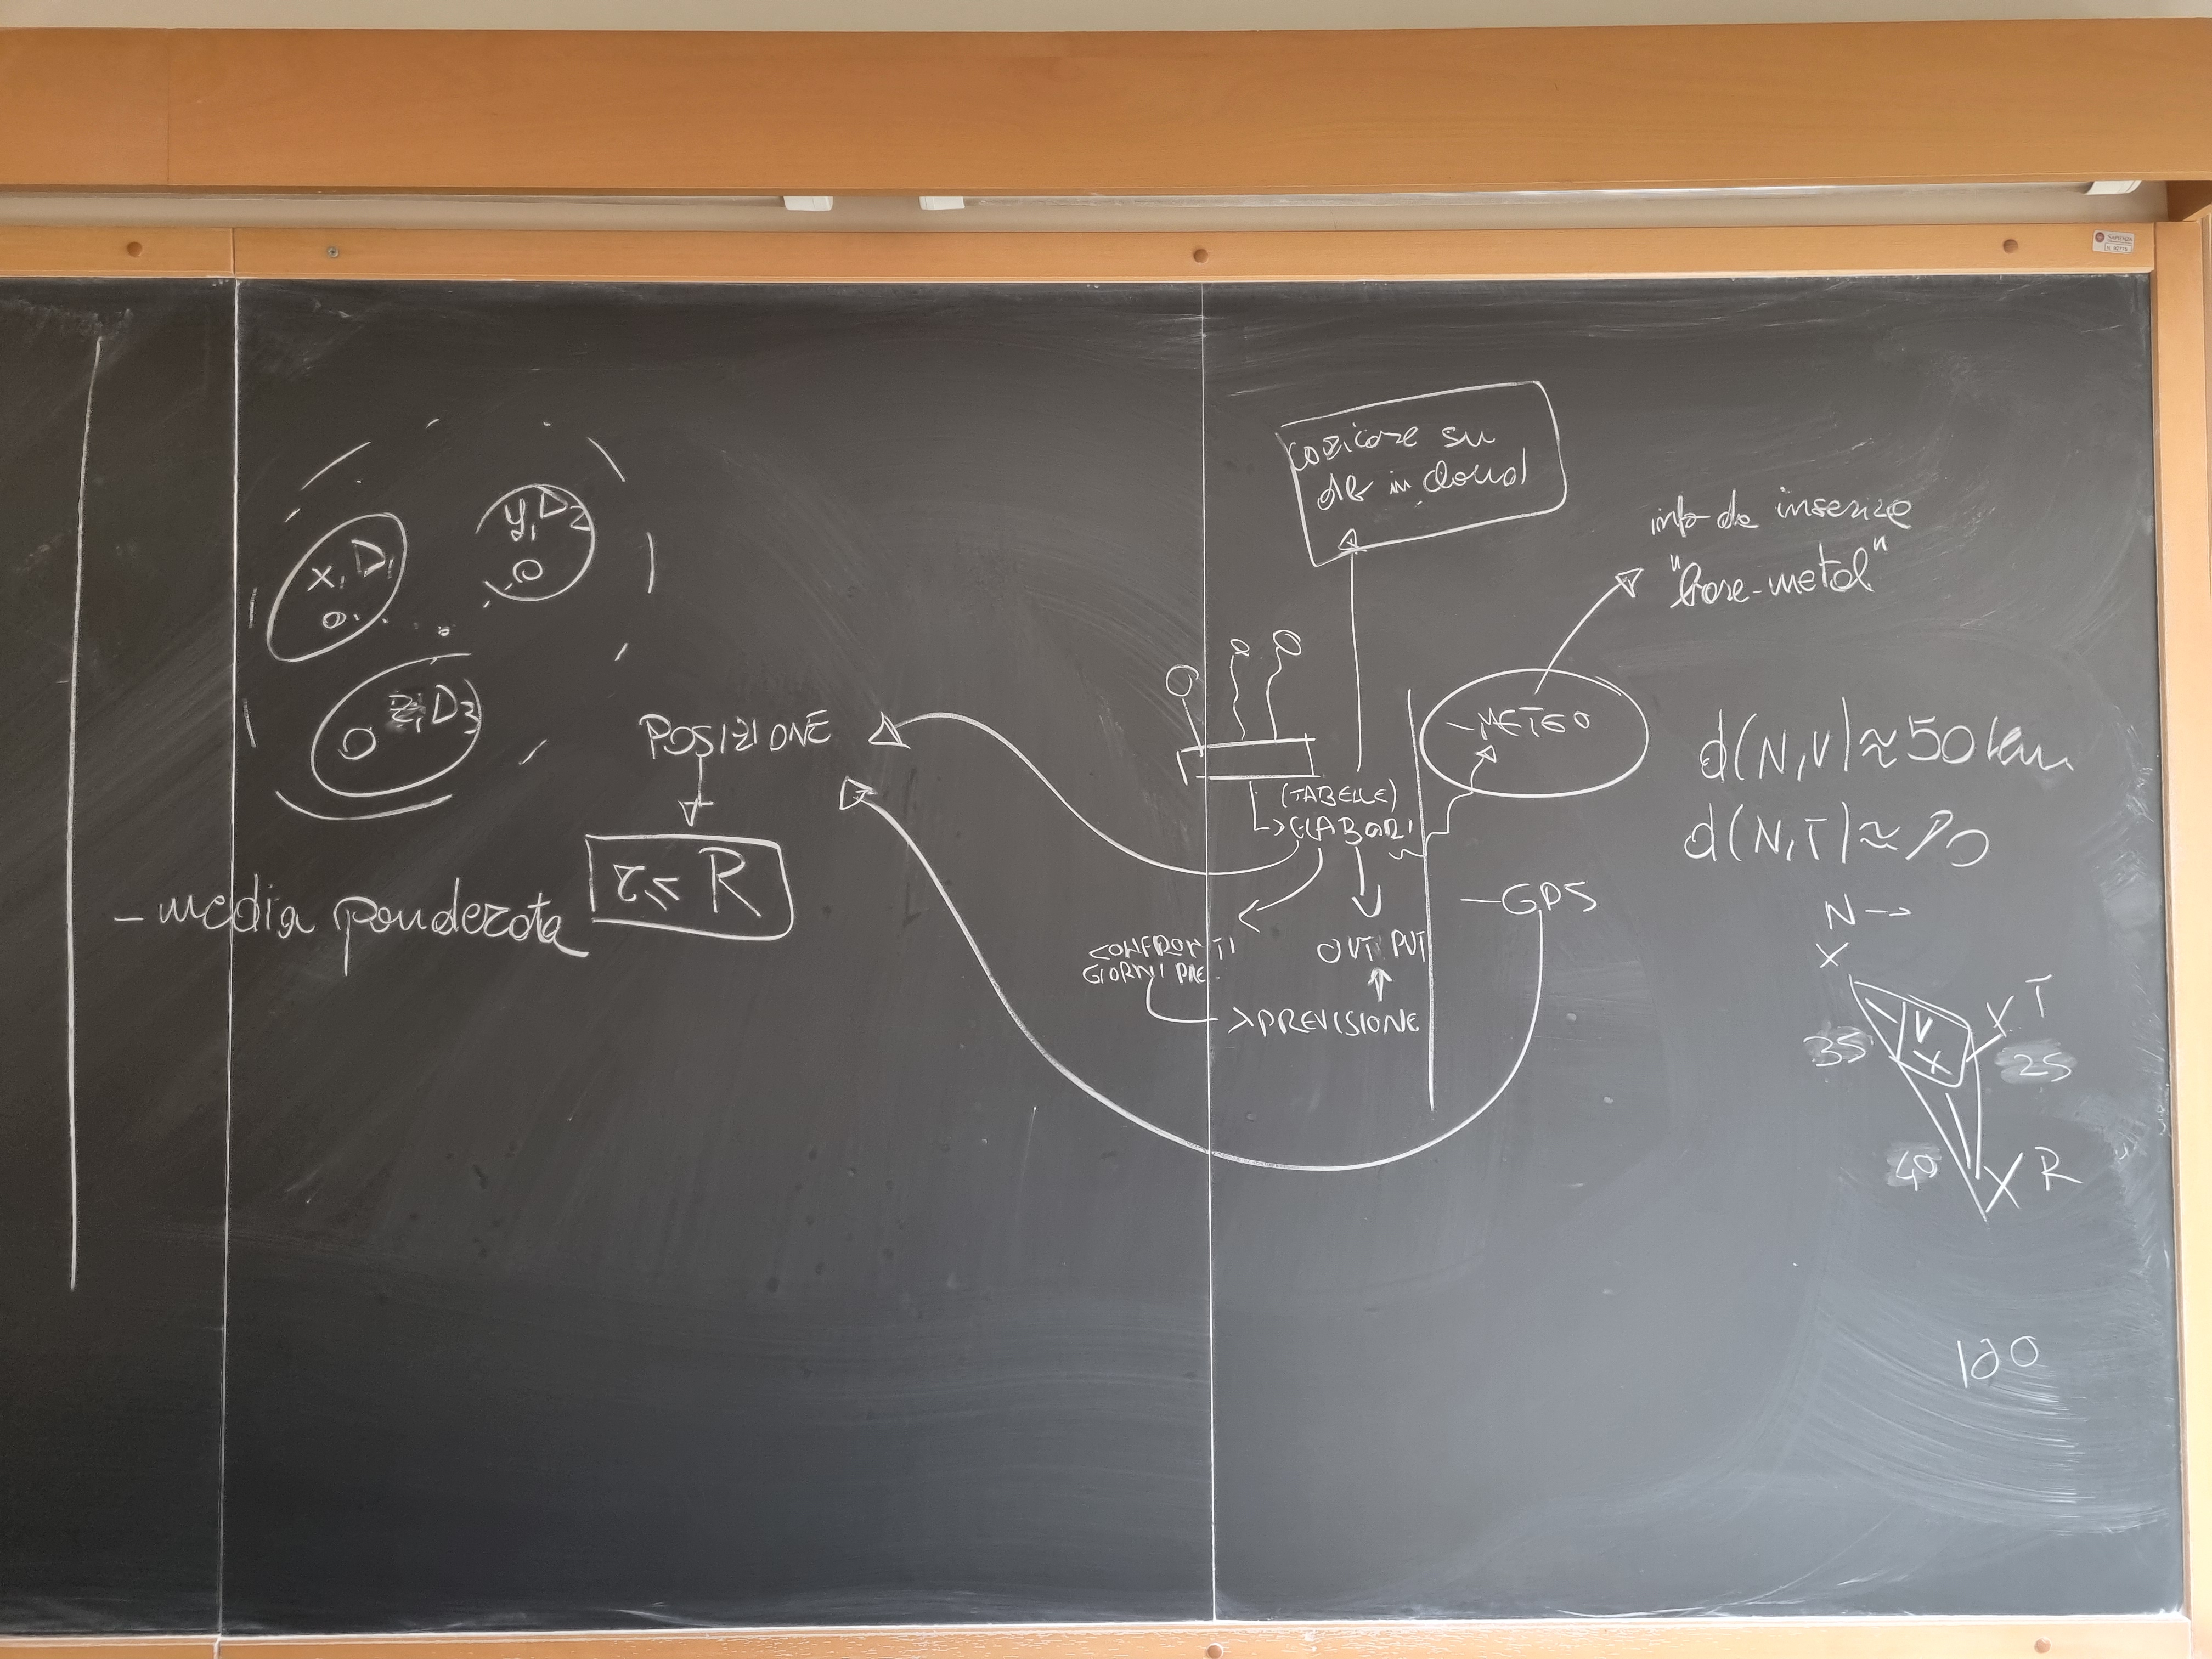 x, D1
y, D2
z, D3
POSIZIONE
R
- media ponderata
caricare su
db in cloud
info da inserire
"bare-metal"
- METEO
(TABELLE)
OUTPUT
CONFRONTI
GIORNI PRE.
PREVISIONE
- GPS
d(N,V) ≈ 50 km
N →
X
V
X
X T
35
25
40
X R